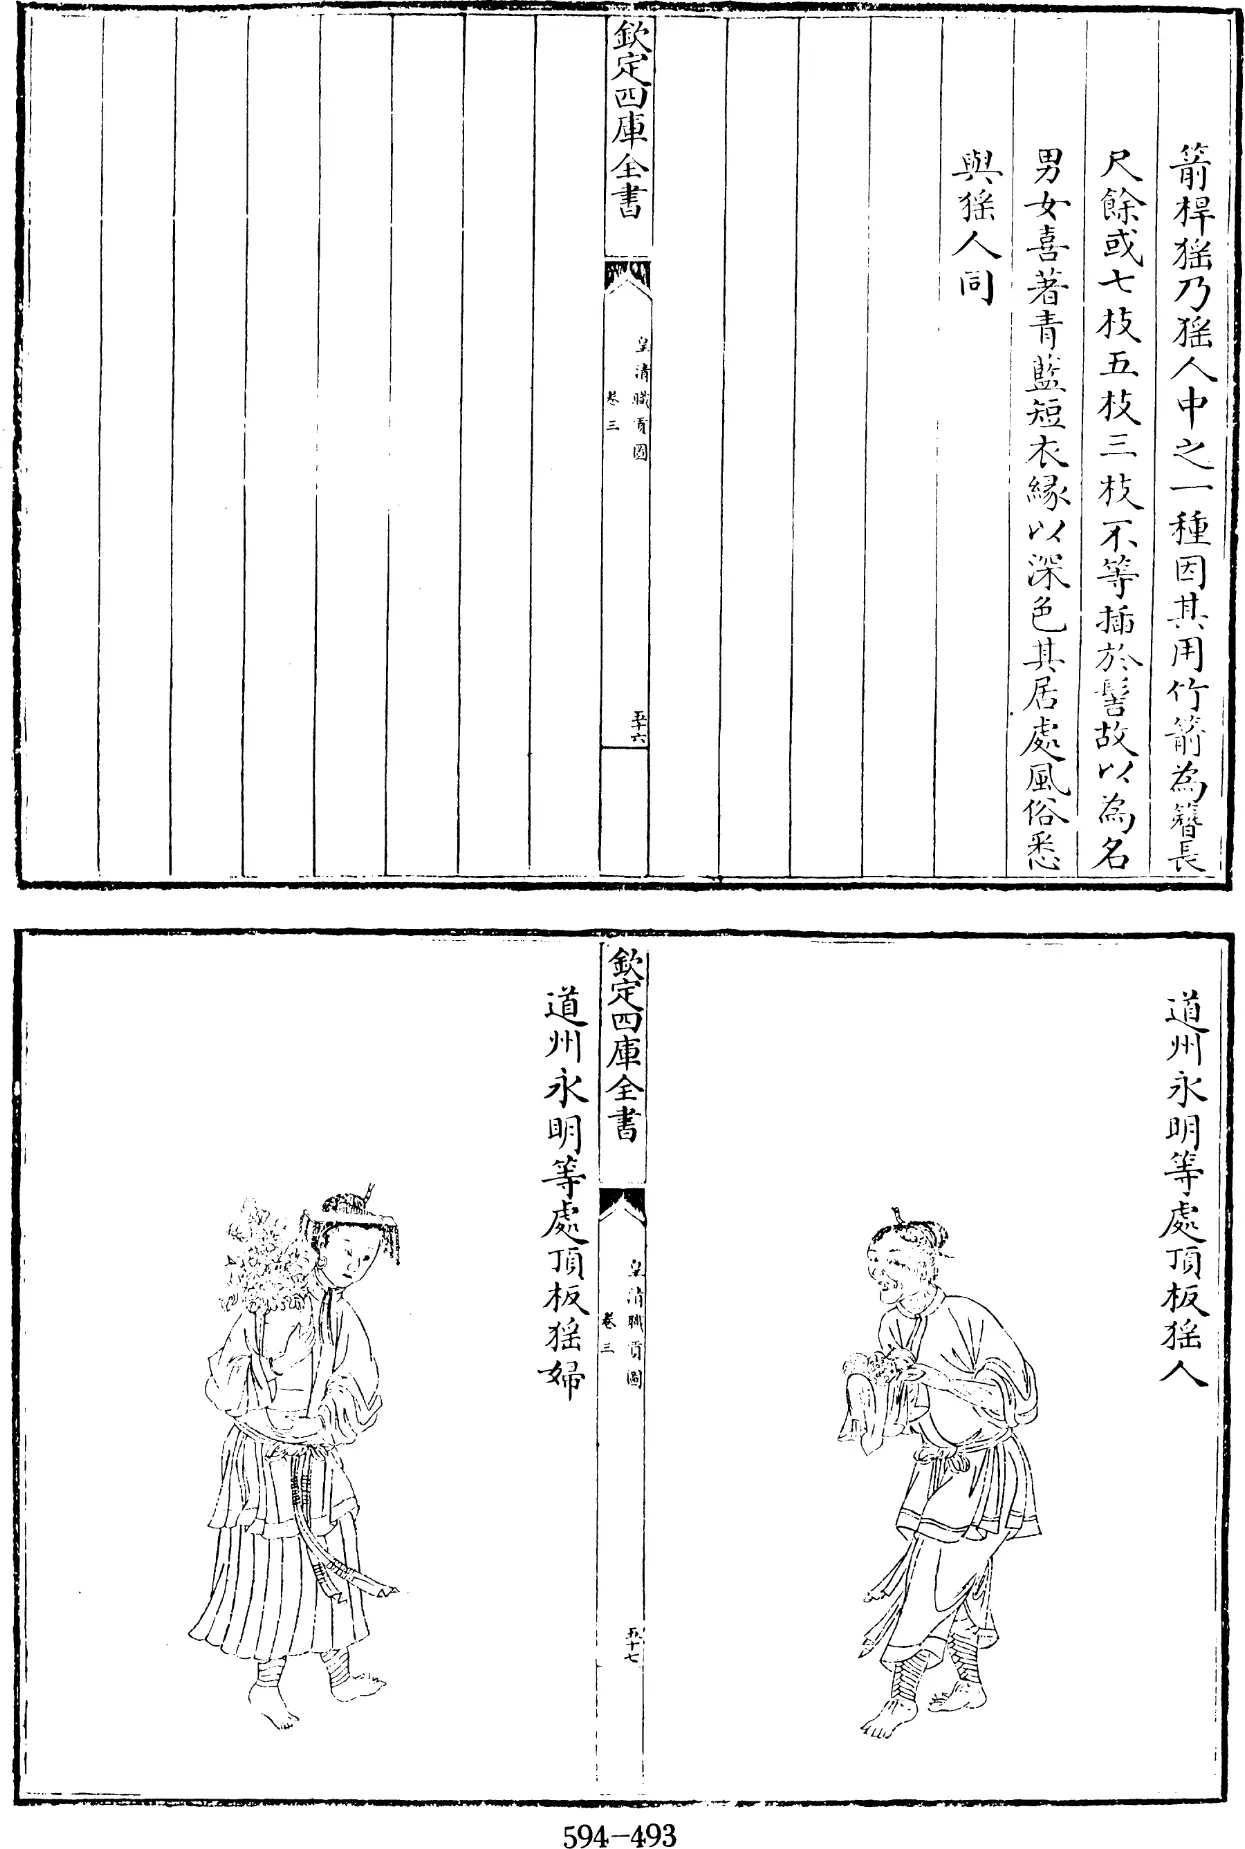 箭桿猺乃猺人中之一種因其用竹箭為簪長
尺餘或七枝五枝三枝不等插於髻故以為名
男女喜著青藍短衣縁以深色其居處風俗悉
與猺人同
欽定四庫全書
皇清職貢圖
卷三
五十六
道州永明等處頂板猺人
欽定四庫全書
皇清職貢圖
卷三
五十七
道州永明等處頂板猺婦
594-493